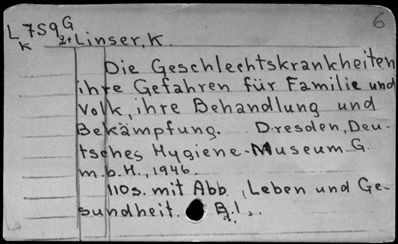 L 7S9G 6
k 2+ Linser, K.
Die Geschlechtskrankheiten
ihre Gefahren für Familie und
Volk, ihre Behandlung und
Bekämpfung. Dresden, Deu-
tsches Hygiene-Museum G.
m.b.H., 1946.
110s. mit Abb. Leben und Ge-
sundheit. Bd. 1.